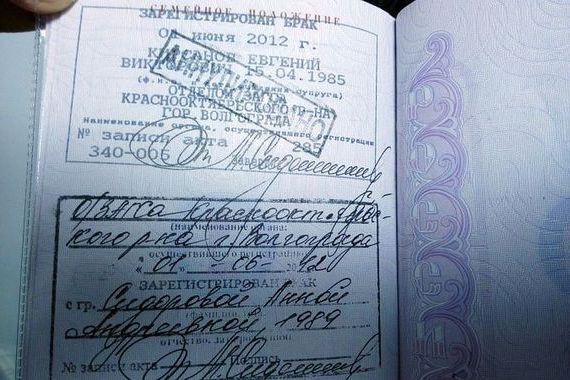 СЕМЕЙНОЕ ПОЛОЖЕНИЕ
ЗАРЕГИСТРИРОВАН БРАК
01 июня 2012 г.
ЕВГЕНИЙ
15.04.1985
ОТДЕЛОМ
КРАСНООКТЯБРЬСКОГО Р-НА
ГОР. ВОЛГОГРАДА
Наименование органа, осуществившего регистрацию
№ записи акта 285
340-006
О/ЗАГСа Краснооктябрьс-
кого р-на г. Волгограда
(наименование органа,
осуществившего регистрацию)
"01" - 06 -
ЗАРЕГИСТРИРОВАН БРАК
с гр. Сидоровой Анной
Андреевной, 1989
отчество, дата рождения
№ записи акта Подпись